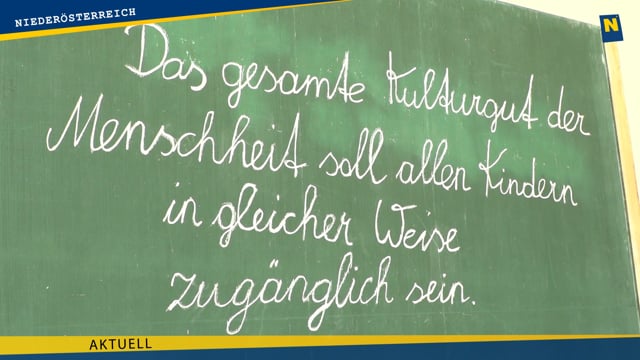 NIEDERÖSTERREICH
N
Das gesamte Kulturgut der
Menschheit soll allen Kindern
in gleicher Weise
zugänglich sein.
AKTUELL